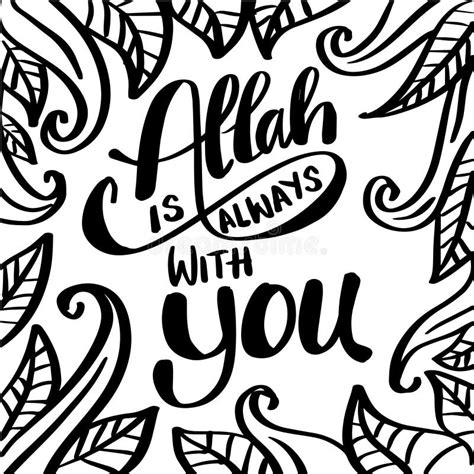 Allah
IS ALWAYS
WITH
you